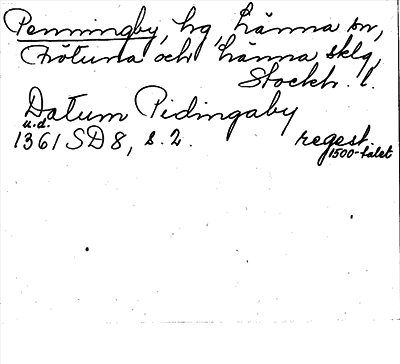 Penningby, hg, Länna sn,
Frötuna och Länna sklg,
Stockh. l.
Datum Pidingaby
u.d.
1361 SD 8, s. 2. regest.
1500-talet